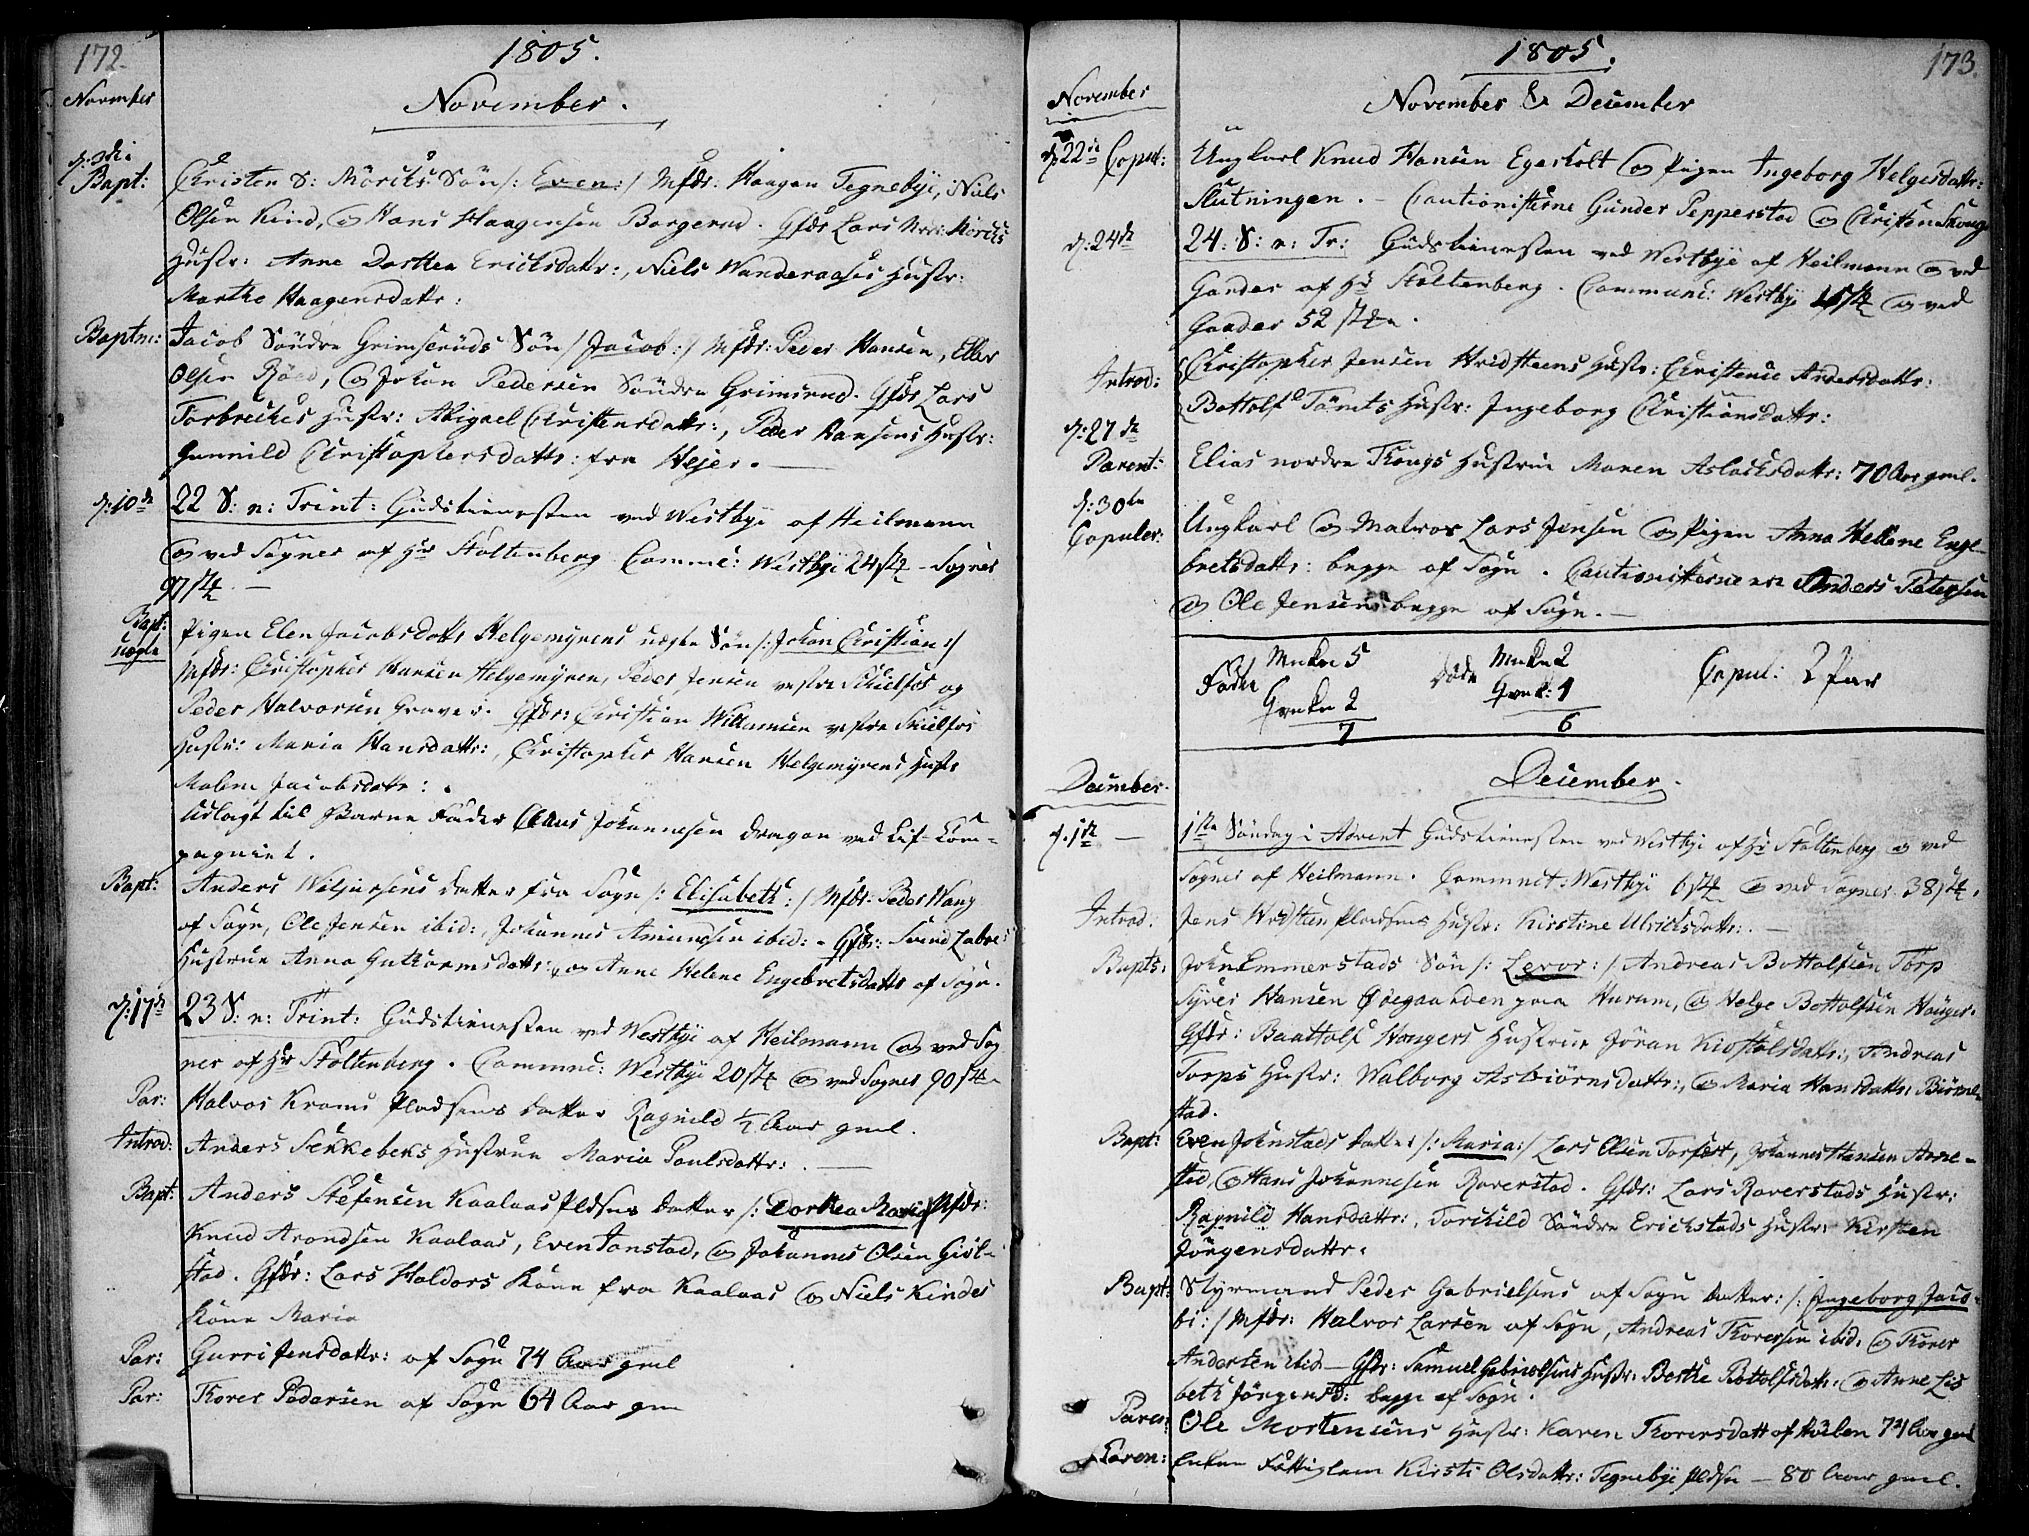 172.
1805.
November
November.
d: 3die
Bapt: Christen S: Möricks Sön /: Even :/ Mfdr: Haagen Tegnebye, Niels
Olsen Kind, og Hans Haagensen Borgerud. Gfdr Lars Möricks
Hustr: Anne Dorthea Ericksdattr:, Niels Wanderaases Hustr:
Marthe Haagensdattr:
Baptm: Jacob Söndre Grimseruds Sön /: Jacob :/ Mfdr: Peder Hansen, Eller
Olsen Röed, og Johan Pedersen Söndre Grimsrud. Gfdr Lars
Torbreckes Hustr: Abigael Christensdattr:, Peder Hansens Hustr:
Gunnild Christophersdattr: fra Hejer.
d: 10de 22 S: n: Trint: Gudstienesten ved Westbye af Heilmann
og ved Sogner af Hr Stoltenberg Commu: Westbye 24 st - Sogner
97 st.
Bapt: uægte Pigen Elen Jacobsdattr Helgemyrens uægte Sön /: Johan Christian :/
Mfdr: Christopher Hansen Helgemyren, Peder Jensen vestre Skielfos og
Peder Halvorsen Graver. Gfdr: Christian Willumsen vestre Skielfos
Hustr: Maria Hansdattr:, Christopher Hansen Helgemyrens Hustr
Malene Jacobsdattr:.
Udlagt til Barne Fader Claus Johannesen Dragon ved Lif-Com-
pagniet.
Bapt: Anders Datter fra Sogn /: Elisabeth :/ Mfdr: Peder Wang
af Sogn, Ole Jensen ibid:, Johannes Amundsen ibid:. Gfdr: Svend Labes
Hustrue Anna Guttormsdattr: og Anne Helene Engebretsdattr af Sogn.
d: 17de 23 S: n: Trint: Gudstienesten ved Westbye af Heilmann og ved Sog
ner af Hr Stoltenberg. Commu: Westbye 20 st og ved Sogner 90 st
Par: Halvor Kroms Pladsens Datter Ragnild 1/2 Aar gml.
Introd: Anders Senkebeks Hustrue Maria Poulsdattr:.
Bapt: Anders Stefensen Kaalaas Pldsens Datter /: Dorthea Maria :/ Mfdr:
Knud Arondsen Kaalaas, Even Tonstad, og Johannes Olsen Giöl-
stad. Gfdr: Lars Haldors Kone fra Kaalaas og Niels Kindes
Kone Maria
Par: Gurri Jensdattr: af Sogn 74 Aar gml
Par: Thorer Pedersen af Sogn 64 Aar gml
1805.
173.
November
November & December
d: 22de Copul: Ungkarl Knud Hansen Egeholt og Pigen Ingeborg Helgesdattr:
Slutningen. - Cautionisterne Gunder Pepperstad og Christen Skoug
d: 24de 24: S: n: Tr: Gudstienesten ved Westbye af Heilmann og ved
Gaarder af Hr Stoltenberg. Communi: Westbye st og ved
Gaarder 52 st.
Introd: Christopher Jensen Hvidsteens Hustr: Christence Andersdattr:
Bottolf Tömts Hustr: Ingeborg Christiansdattr:
d: 27de
Parent: Elias nordre Skougs Hustrue Maren Aslacksdattr: 70 Aar gml.
d: 30te
Copuler: Ungkarl og Matros Lars Jensen og Pigen Anna Hellene Enge-
bretsdattr: begge af Sogn. Cautionisterne er Anders Petersen
og Ole Jensen begge af Sogn.
Födde Mnkn 5 Döde Mnkn 2 Copul: 2 Par
Qvnkn 2 Qvnk:
7 6
December.
December.
d. 1ste 1ste Söndag i Advent Gudstienesten ved Westbye af Hr Stoltenberg og ved
Sogner af Heilmann. Communet: Westbye 6 st og ved Sogner 38 st.
Introd: Jens Hvidsteen Pladsens Hustr: Kirstine Ulricksdattr:.
Bapts: John Emmerstads Sön /: Levor :/ Andreas Bottolfsen Torp
Syver Hansen Öiegaarden paa Hurum, og Helge Bottolfsen Houger.
Gfdr: Baattolf Hougers Hustrue Jöran Kiöstolsdattr:, Andreas
Torps Hustr: Walborg Asbiörnsdattr:, og Maria Hansdattr: Biörne-
stad.
Bapt: Even Johnstads Datter /: Maria :/ Lars Olsen Torfæst, Johannes Hansen Arne-
sted, og Hans Johannesen Raverstad. Gfdr: Lars Raverstads Hustr:
Ragnild Hansdattr:, Torchild Söndre Erickstads Hustr: Kirsten
Jörgensdattr.
Bapt: Styrmand Peder Gabrielsens af Sogn Datter: /: Ingeborg Jaco-
bi :/ Mfdr: Halvor Larsen af Sogn, Andreas Thoresen ibid: og Thorer
Andersen ibid - Gfdr: Samuel Gabrielsens Hustr: Berthe Bottolfsdattr. og Anne Lis
beth Jörgensd: begge af Sogn.
Paren: Ole Mortensens Hustr: Karen Thorersdatt af Hvilen 74 Aar gml
Paren: Enken Fattiglem Kirsti Olsdattr: Tegnebye Pldsn — 80 Aar gml.